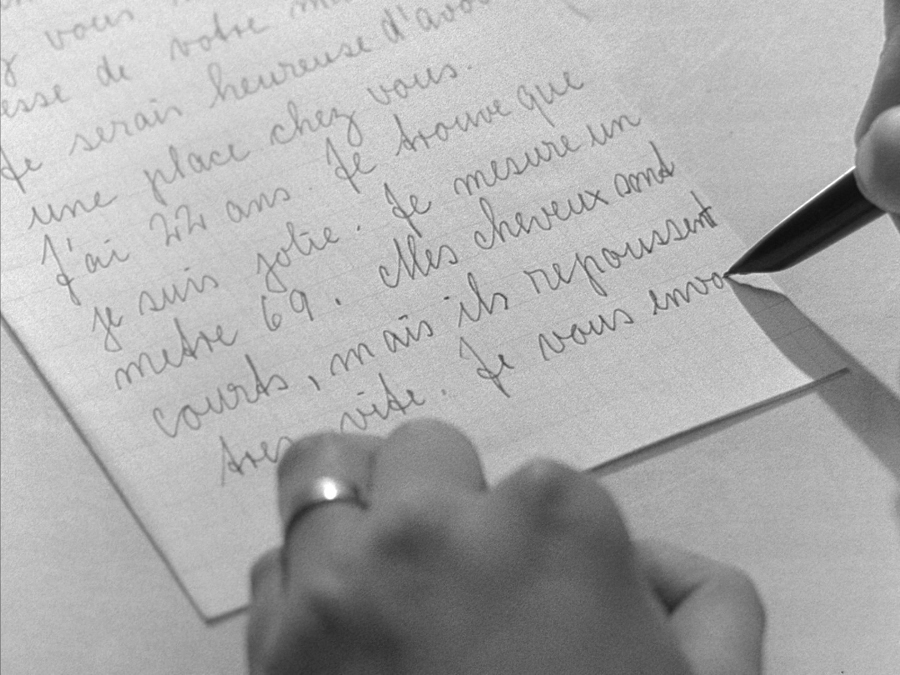 vous
esse de votre
Je serais heureuse d'avoi
une place chez vous.
J'ai 22 ans. Je trouve que
je suis jolie. Je mesure un
metre 69. Mes cheveux sont
courts, mais ils repoussent
tres vite. Je vous envo